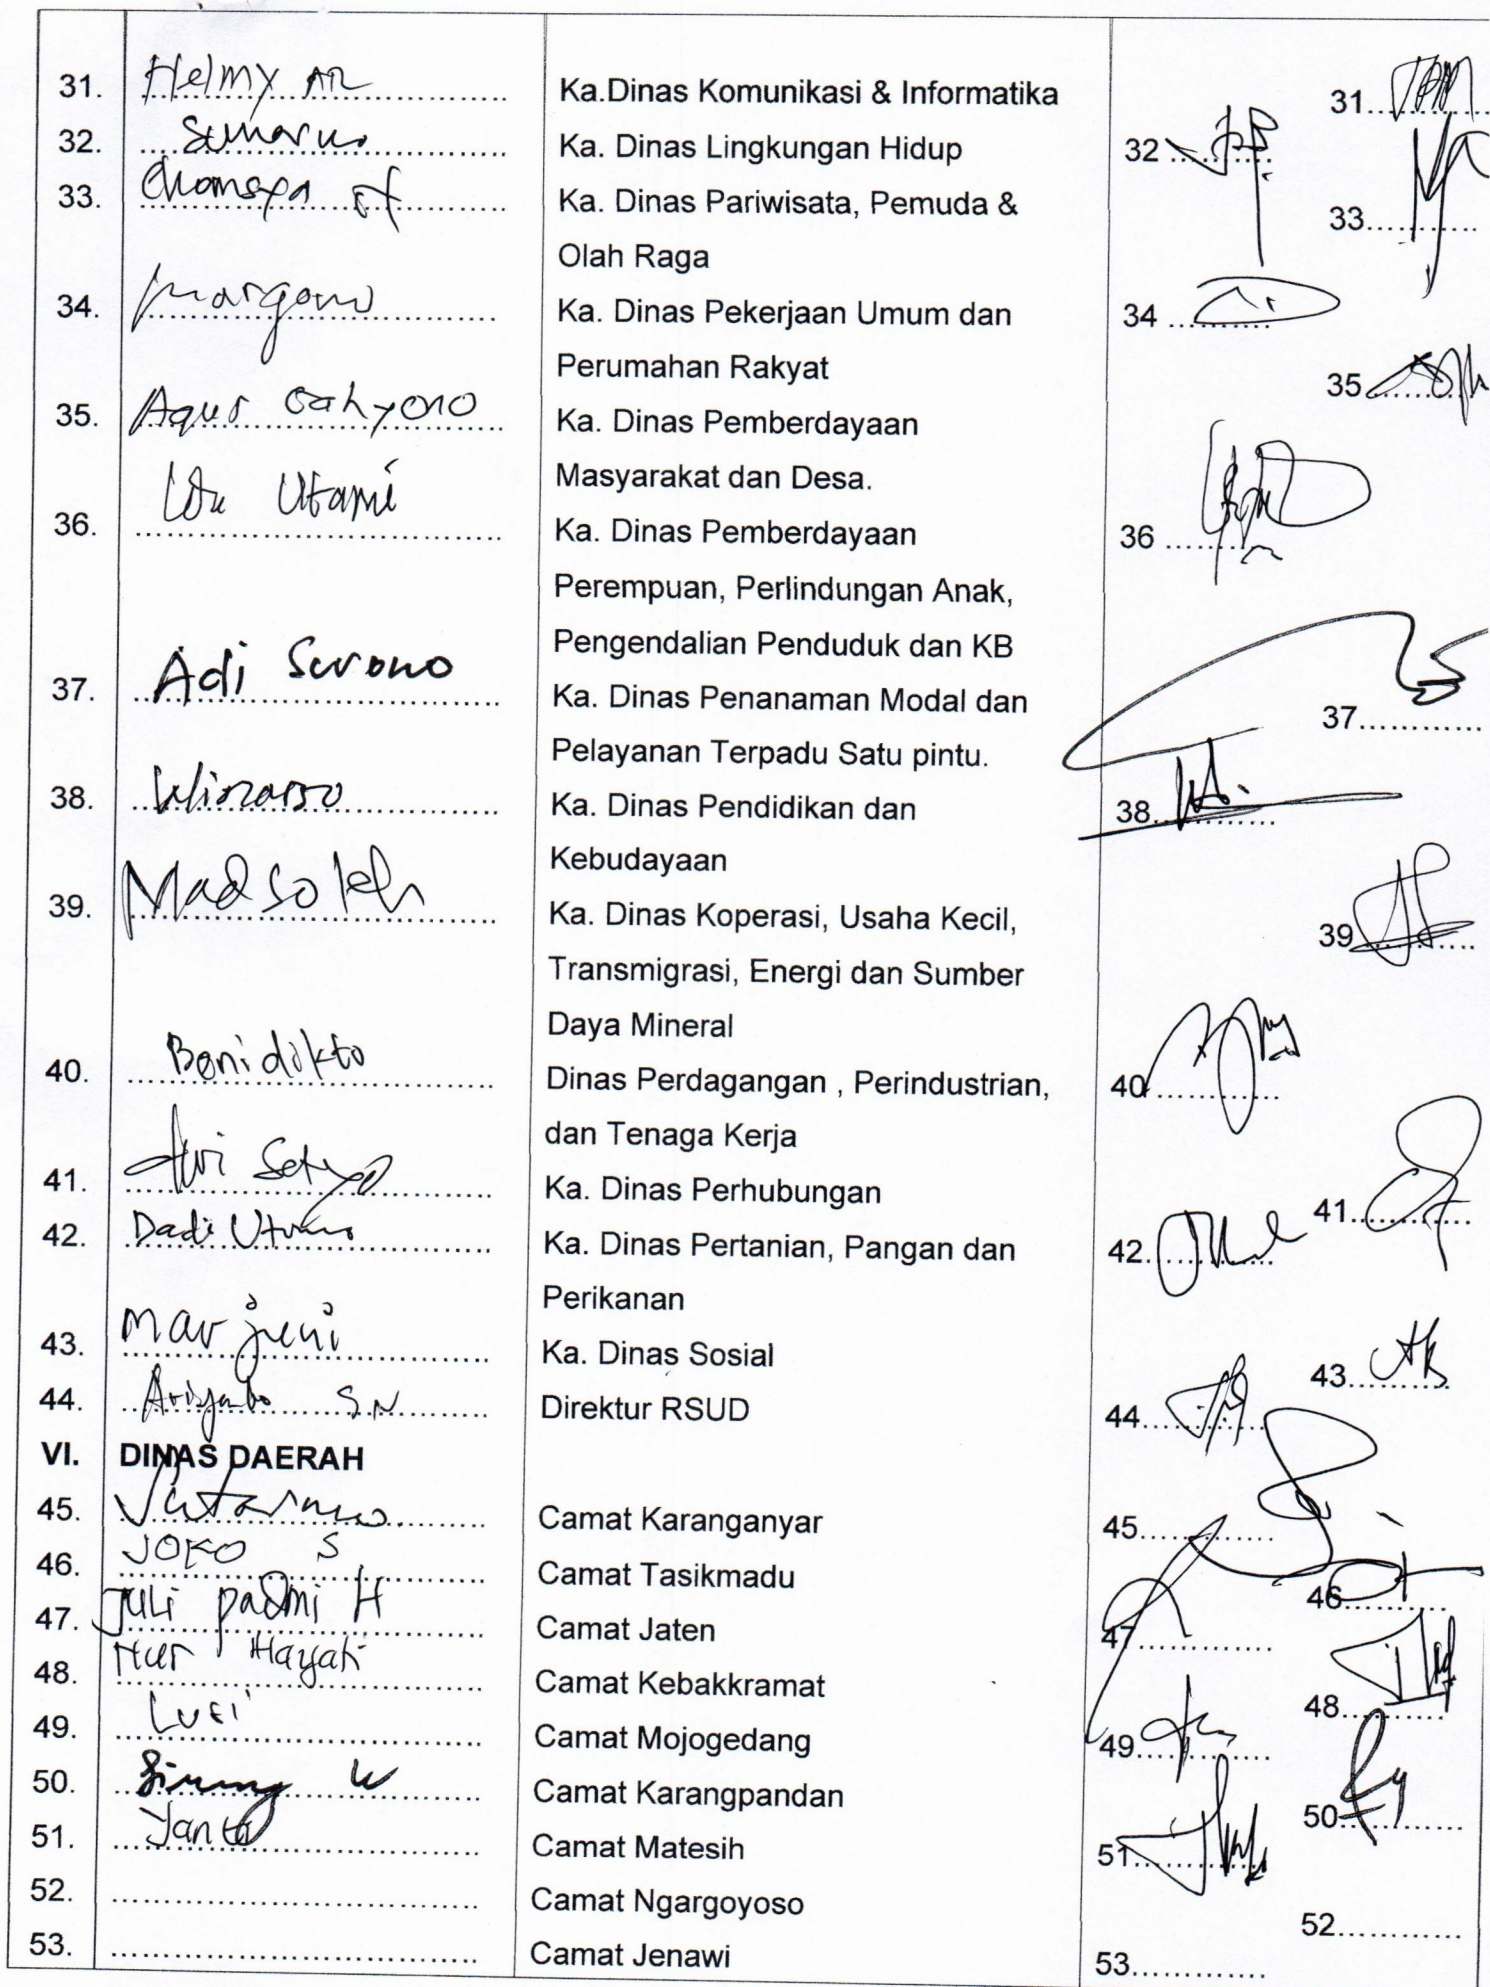 31. Helmy AR Ka.Dinas Komunikasi & Informatika 31
32. Sunarno Ka. Dinas Lingkungan Hidup 32
33. Ka. Dinas Pariwisata, Pemuda & 33
Olah Raga
34. Margono Ka. Dinas Pekerjaan Umum dan 34
Perumahan Rakyat
35. Agus Cahyono Ka. Dinas Pemberdayaan 35
Masyarakat dan Desa.
36. Utami Ka. Dinas Pemberdayaan 36
Perempuan, Perlindungan Anak,
Pengendalian Penduduk dan KB
37. Adi Ka. Dinas Penanaman Modal dan 37
Pelayanan Terpadu Satu pintu.
38. Winarso Ka. Dinas Pendidikan dan 38
Kebudayaan
39. Mad Soleh Ka. Dinas Koperasi, Usaha Kecil, 39
Transmigrasi, Energi dan Sumber
Daya Mineral
40. Dinas Perdagangan , Perindustrian, 40
dan Tenaga Kerja
41. Ka. Dinas Perhubungan 41
42. Dadi Utomo Ka. Dinas Pertanian, Pangan dan 42
Perikanan
43. Marjuni Ka. Dinas Sosial 43
44. S.N Direktur RSUD 44
VI. DINAS DAERAH
45. Sutarmo Camat Karanganyar 45
46. JOKO S Camat Tasikmadu 46
47. Juli Padmi H Camat Jaten 47
48. Nur Hayati Camat Kebakkramat 48
49. Camat Mojogedang 49
50. W Camat Karangpandan 50
51. Yanto Camat Matesih 51
52. Camat Ngargoyoso 52
53. Camat Jenawi 53